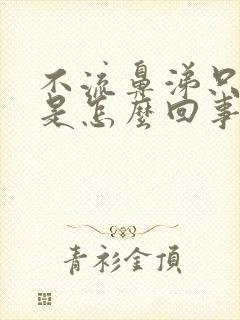 不流鼻涕只
是怎麼回事
青衫金頂